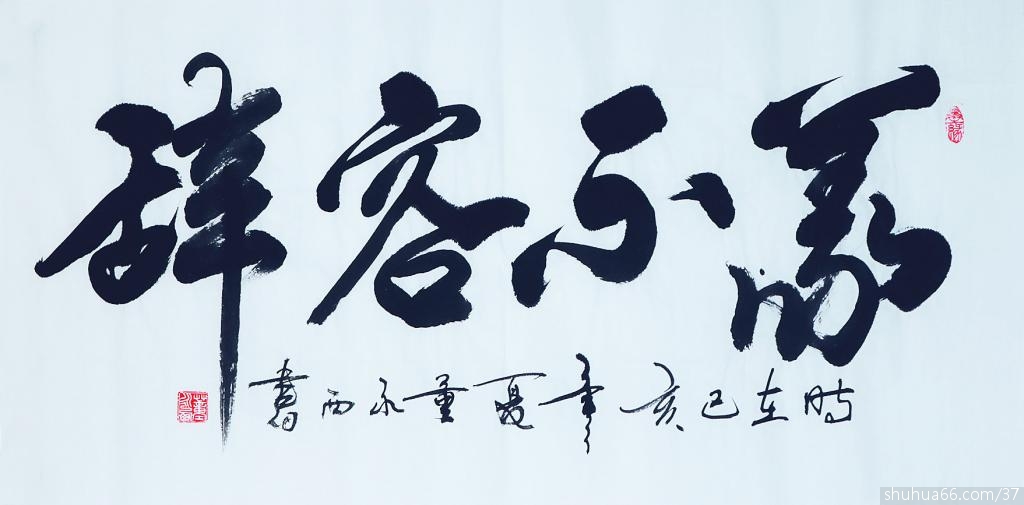 義不容辭
時在己亥年夏董永西書
shuhua66.com/37